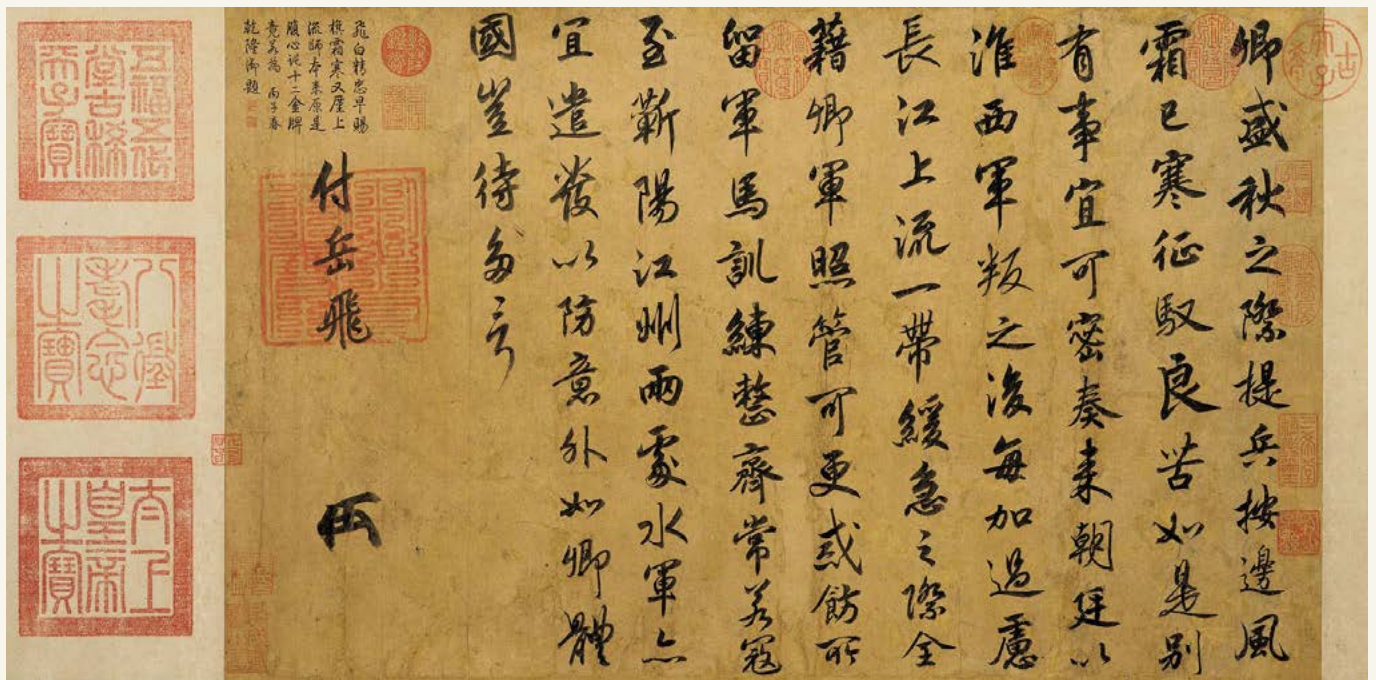 古希
天子
卿盛秋之際提兵按邊風
霜已寒征馭良苦如是別
有事宜可密奏來朝廷以
淮西軍叛之後每加過慮
長江上流一帶緩急之際全
藉卿軍照管可更戒飭所
留軍馬訓練整齊常若寇
至蘄陽江州兩處水軍亦
宜遣發以防意外如卿體
國豈待多言
付岳飛
飛白精忠早賜
旗霜寒又廑上
流師本來原是
腹心託十二金牌
竟若為 丙子春
乾隆御題
五福五代
堂古稀
天子寶
八徵
耄念
之寶
太上
皇帝
之寶